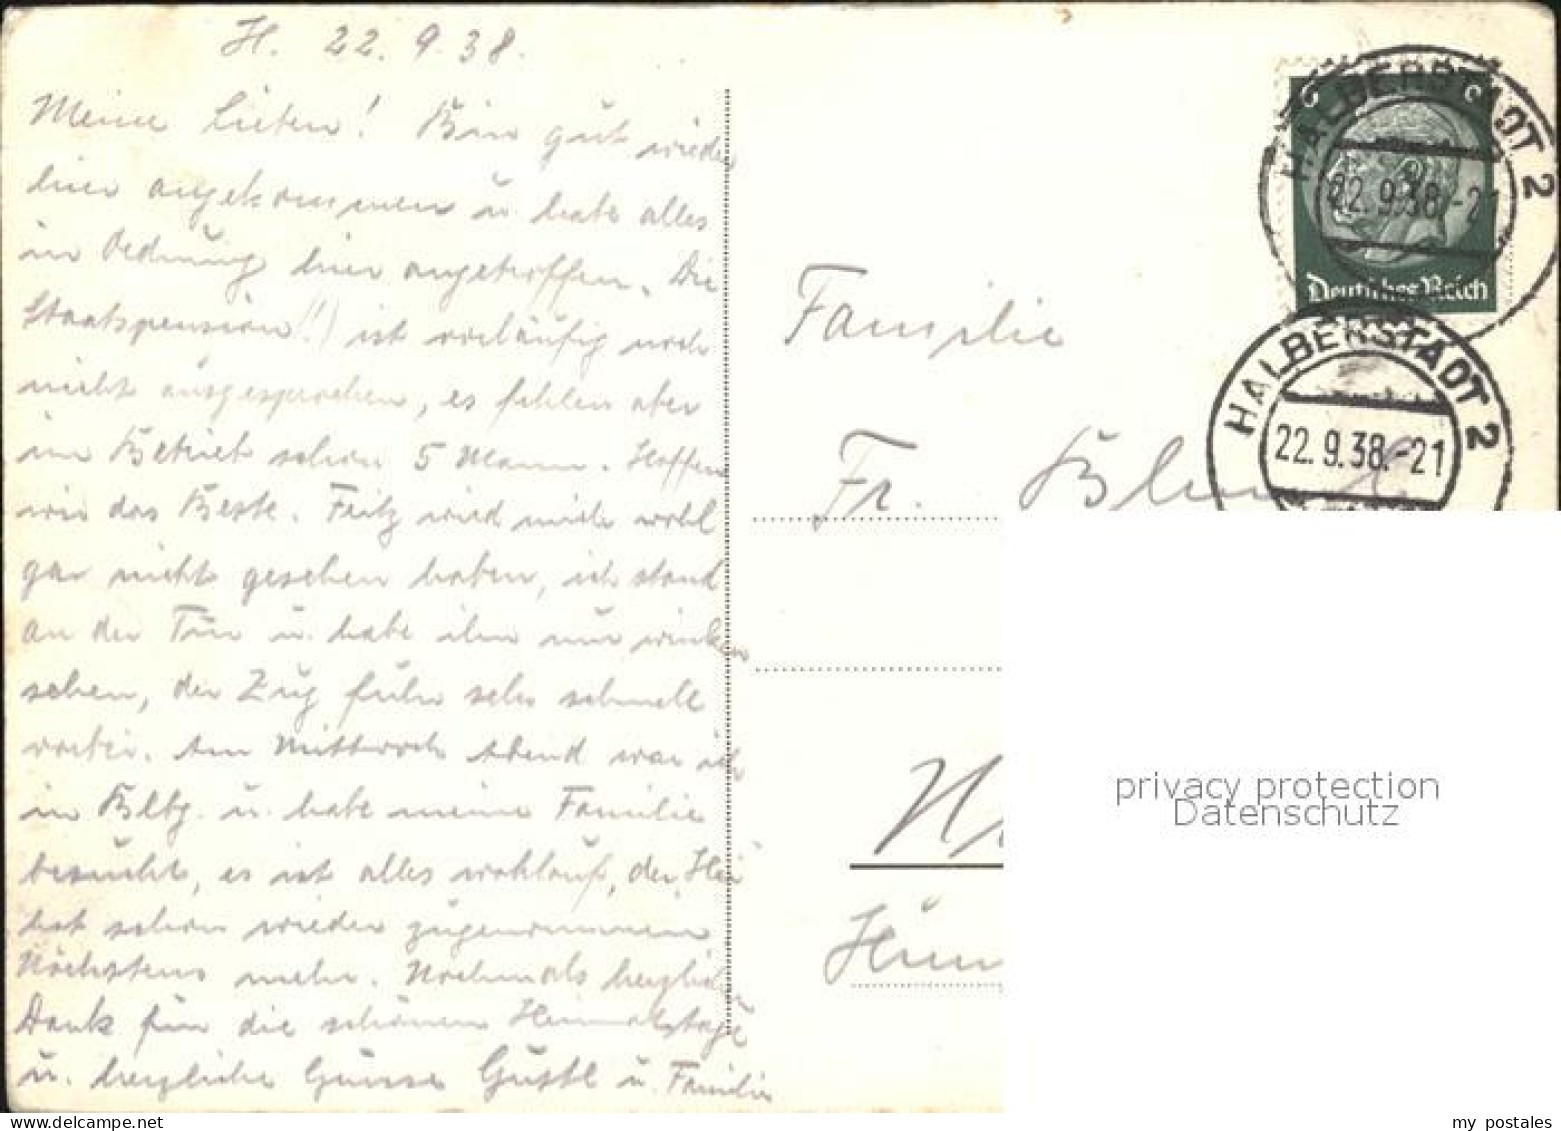 H. 22. 9. 38.
Meine Lieben! Bin gut wieder
hier angekommen u. habe alles
in Ordnung hier angetroffen. Die
Staatspension (!!) ist vorläufig noch
nicht ausgesprochen, es fehlen aber
im Betrieb schon 5 Mann. Hoffen
wir das Beste. Fritz wird mich wohl
gar nicht gesehen haben, ich stand
an der Tür u. habe ihn nur winken
sehen, der Zug fuhr sehr schnell
vorbei. Am Mittwoch Abend war ich
in Blbg. u. habe meine Familie
besucht, es ist alles wohlauf, der
hat schon wieder zugenommen
Nächstens mehr. Nochmals herzlichen
Dank für die schönen Heimatstage
u. herzliche Grüsse Gustl u. Familie
Familie
Fr.
HALBERSTADT 2
22.9.38.-21
Deutsches Reich
6 6
HALBERSTADT 2
22.9.38.-21
privacy protection
Datenschutz
my postales